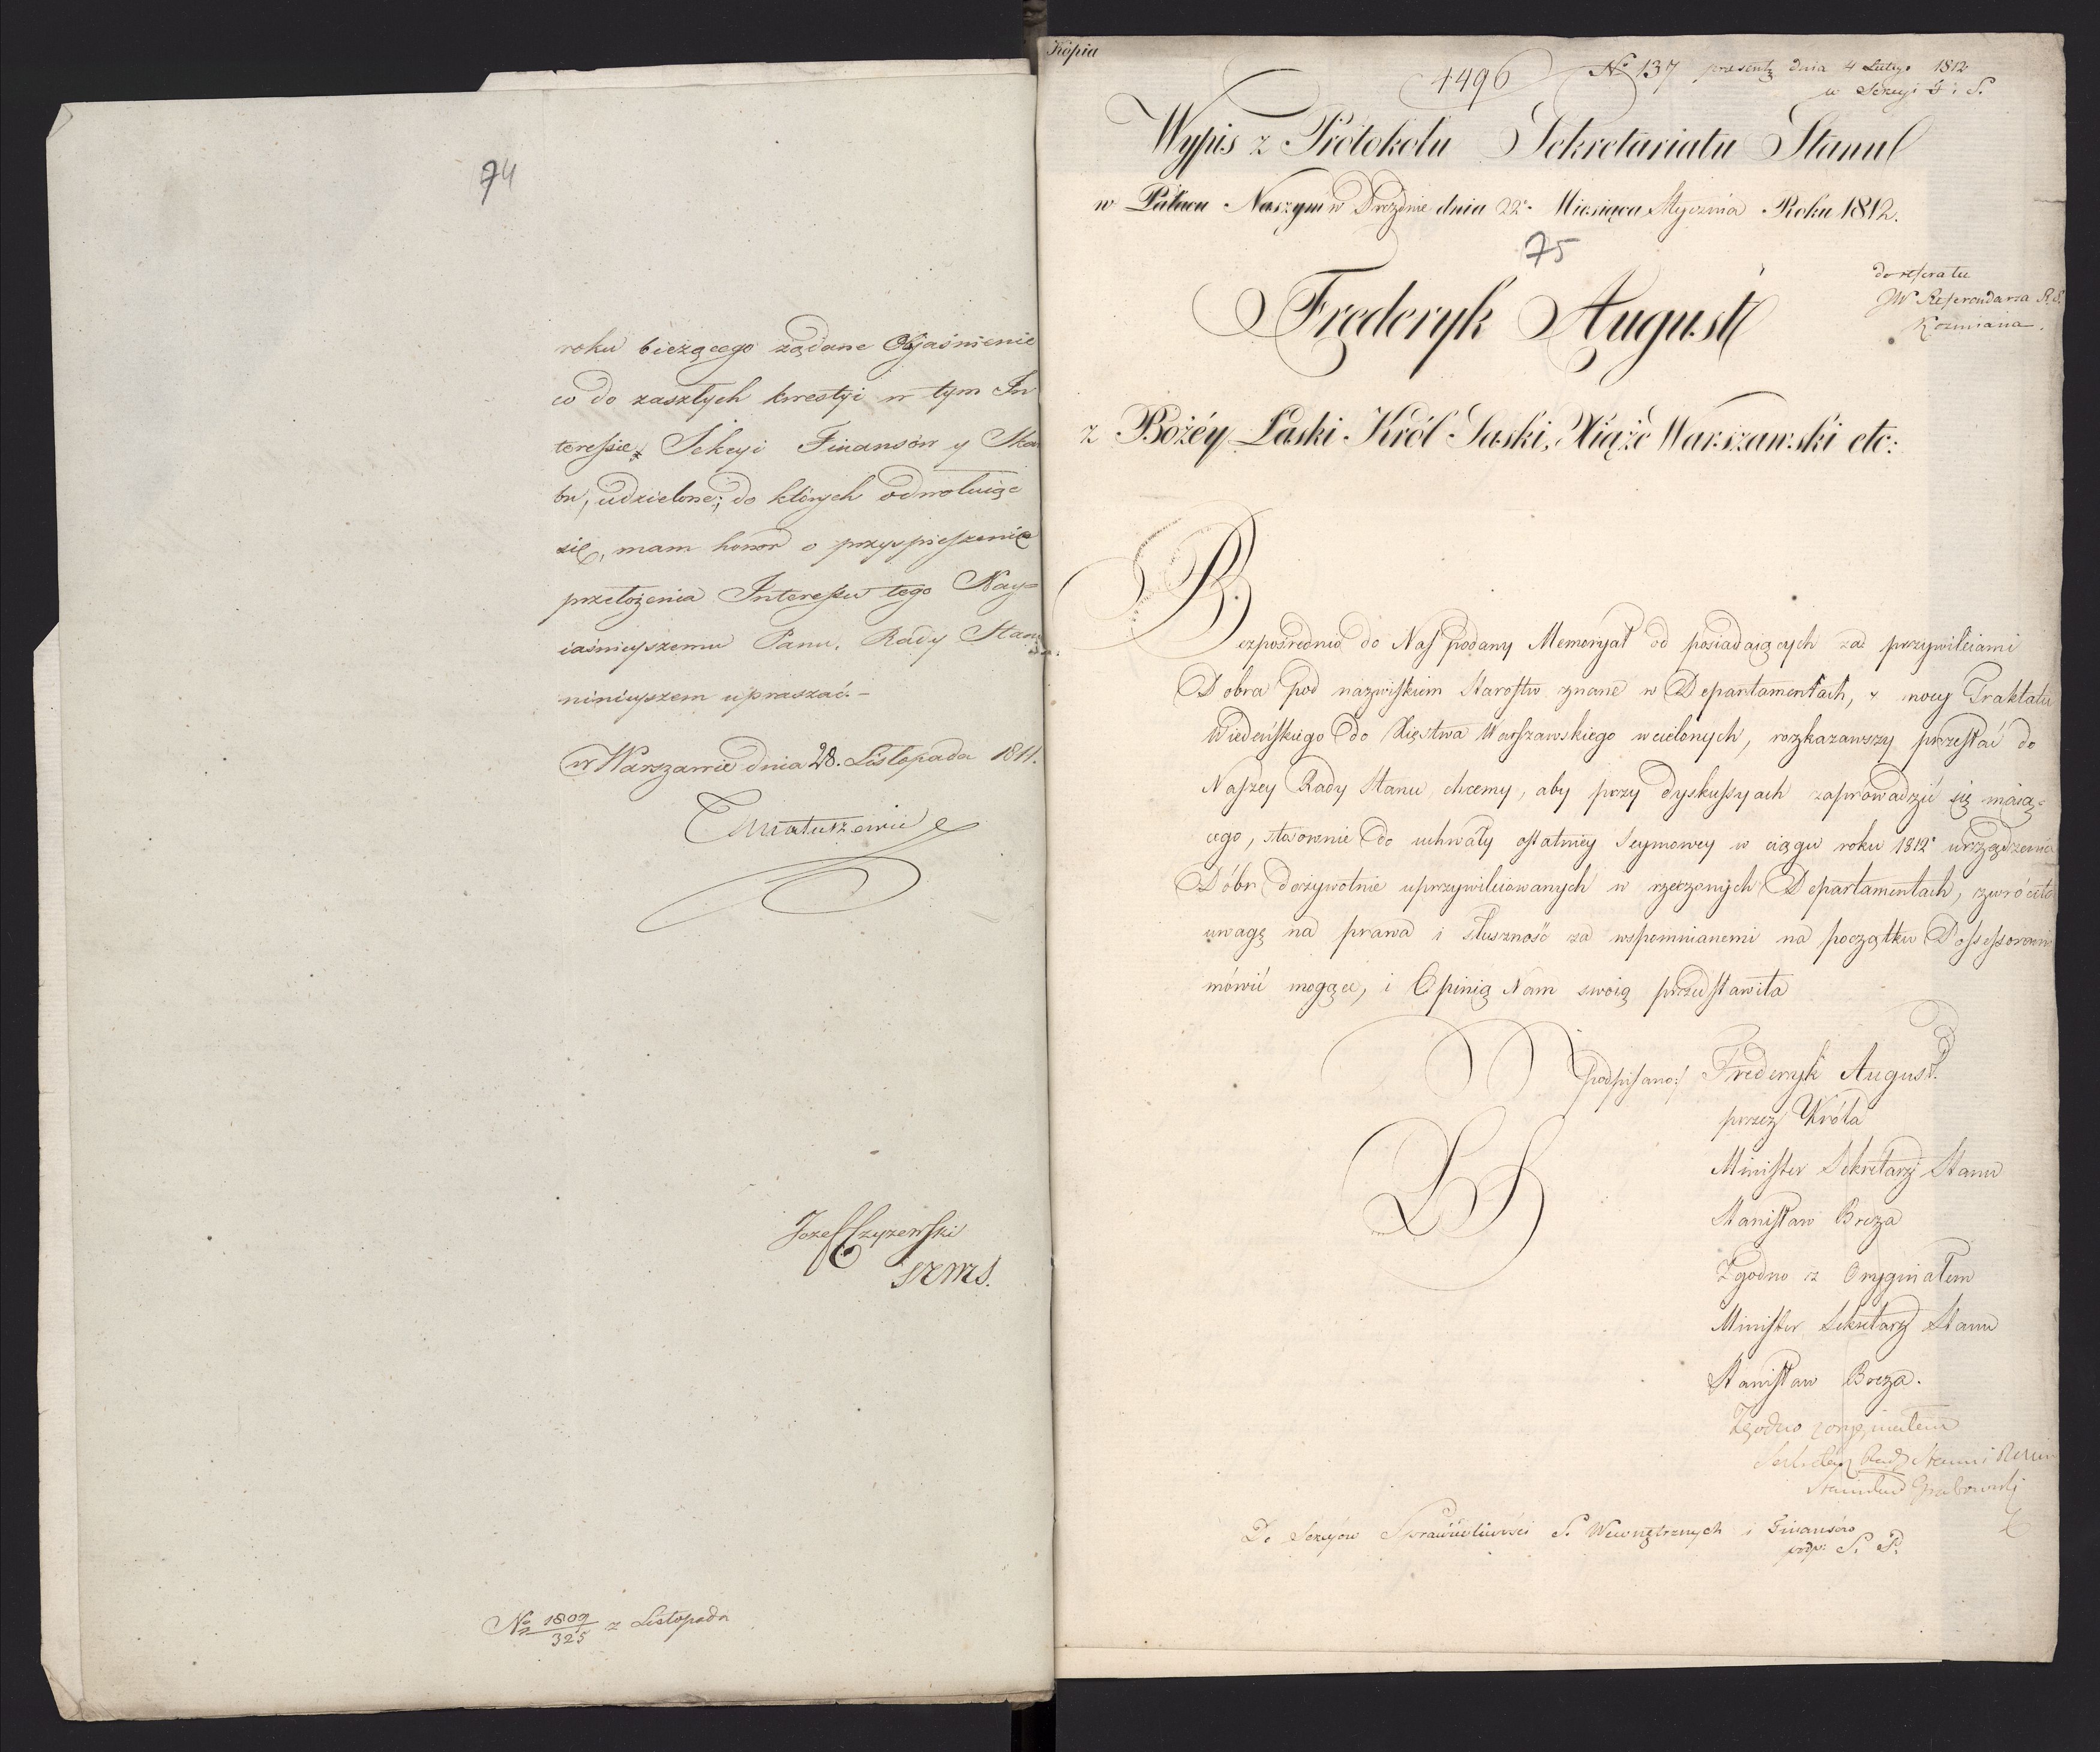 74
roku bieżącego żądane Objaśnienie
co do zaszłych kwestyi w tym In
teressie, Sekcyi Finansów y Skar
bu, udzielone; do których odwołuiąc
się, mam honor o przyspieszenie
przełożenia Interessu tego Nay=
iaśnieyszemu Panu, Rady Stanu
ninieyszem upraszać.-
w Warszawie dnia 28. Listopada 1811.
TMatuszewic
Jozef Czyzewski
No 1809/325 z Listopada
Kopia
1496 No 137 praesentz dnia 4 Lutego 1812
w Sekcyi F i S.
Wypis z Protokołu Sekretariatu Stanu
w Pałacu Naszym w Dreźnie dnia 22o Miesiąca Stycznia Roku 1812.
75
do referatu
JW Referendarza R.S.
Kozmiana.
Frederyk August
z Bożéy Łaski Król Saski, Xiąże Warszawski etc:
Bezpośrednio do Nas podany Memoryał od posiadaiących za przywileiami
Dobra pod nazwiskiem Starostw znane w Departamentach, z mocy Traktatu
Wiedeńskiego do Xięstwa Warszawskiego wcielonych, rozkazawszy przesłać do
Naszey Rady Stanu, chcemy, aby przy dyskussyach zaprowadzić się maią=
cego, stosownie do uchwały ostatniey Seymowey w ciągu roku 1812o urządzenia
Dóbr dożywotnie uprzywileiowanych w rzeczonych Departamentach, zwróciła
uwagę na prawa i słuszność za wspomnianemi na początku Possessorami
mówić mogące, i Opinią Nam swoią przedstawiła
podpisano:/ Frederyk August.
przez Króla
LS
Minister Sekretarz Stanu
Stanisław Breza
Zgodno z Oryginałem
Minister Sekretarz Stanu
Stanisław Breza.
Zgodno z oryginałem
Sekretarz Rady Stanu i
Stanisław Grabowski
Do Sekcyów Sprawiedliwości S. Wewnętrznych i Finansów
podp: S. P.